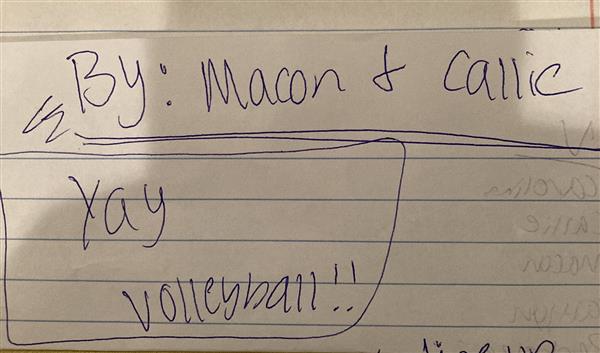 By: Macon & Callie
Yay
volleyball!!
line up